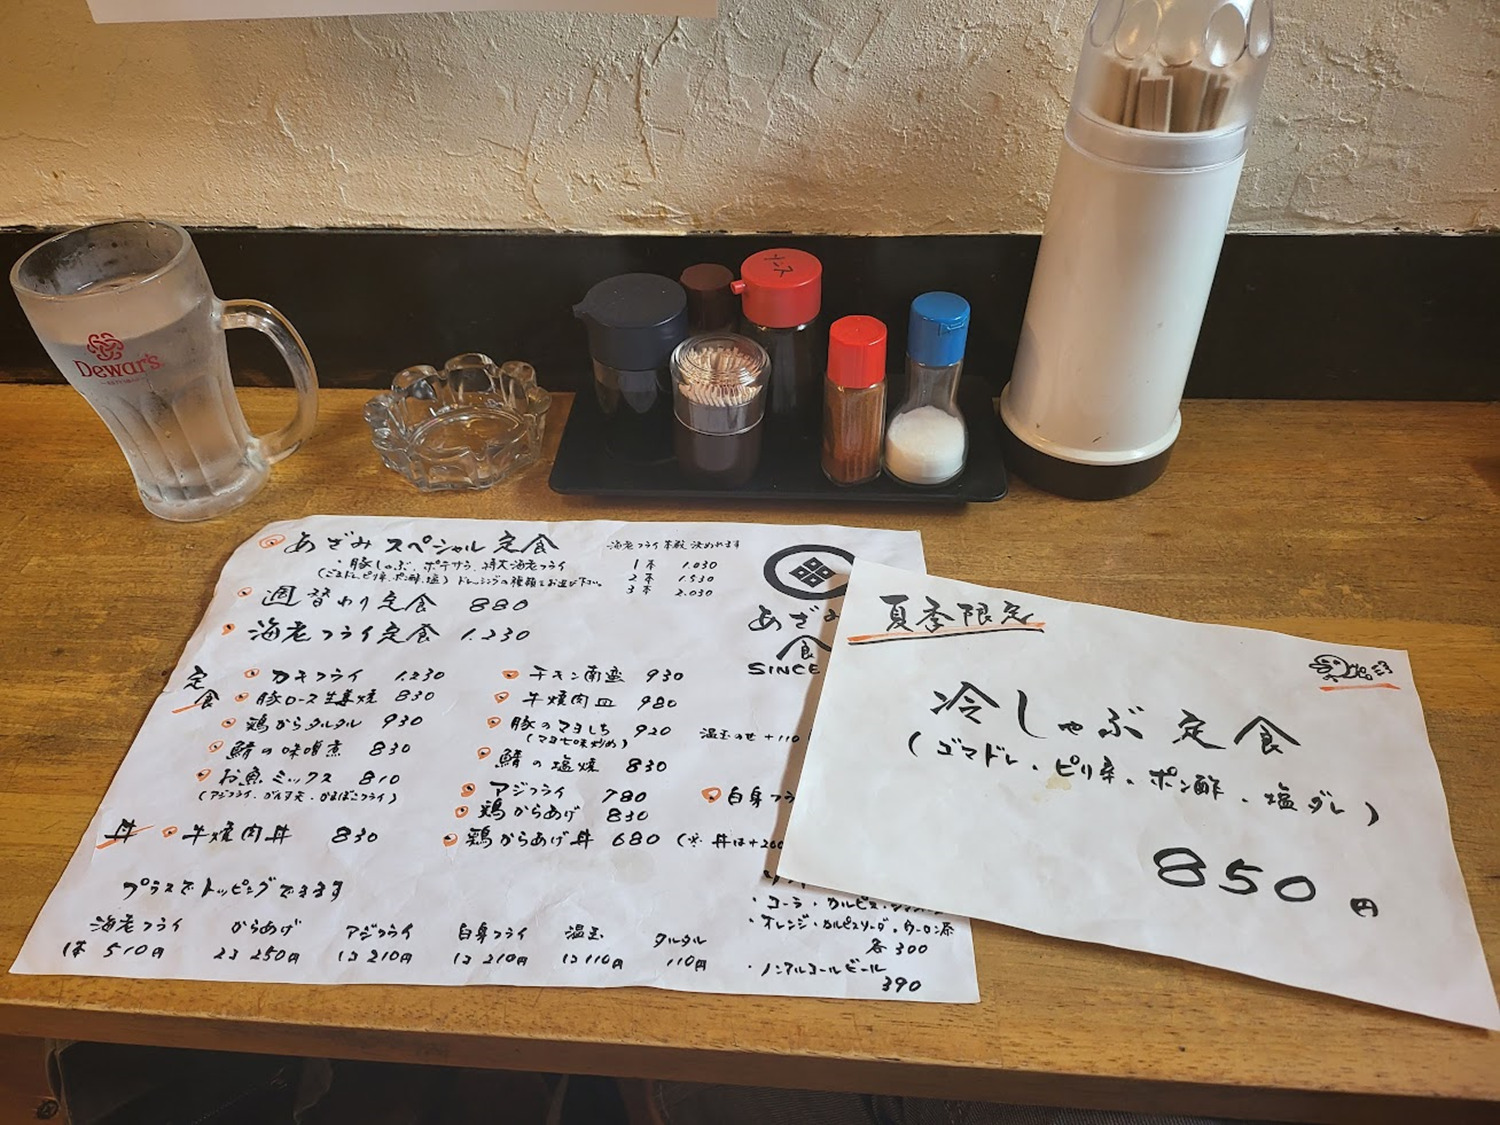 Dewar's
ソース
あざみスペシャル定食
・豚しゃぶ、ポテサラ、特大海老フライ
(ごまドレ、ピリ辛、ポン酢、塩) ドレッシングの種類をお選び下さい。
海老フライ本数決めれます
1本 1.030
2本 1.530
3本 2.030
週替わり定食 880
海老フライ定食 1.230
あざみ
食
SINCE
定食
カキフライ 1.230
豚ロース生姜焼 830
鶏からタルタル 930
鯖の味噌煮 830
お魚ミックス 810
(アジフライ・がんす天・かまぼこフライ)
チキン南蛮 930
牛焼肉皿 980
豚のマヨしち 920
(マヨ七味炒め)
温玉のせ +110
鯖の塩焼 830
アジフライ 780
白身フラ
鶏からあげ 830
丼
牛焼肉丼 830
鶏からあげ丼 680 (※ 丼は+200
プラスでトッピングできます
海老フライ 1本 510円
からあげ 2コ 250円
アジフライ 1コ 210円
白身フライ 1コ 210円
温玉 1コ 110円
タルタル 110円
・コーラ・カルピス・
・オレンジ・カルピスソーダ・ウーロン茶
各300
・ノンアルコールビール
390
夏季限定
冷しゃぶ定食
(ゴマドレ・ピリ辛・ポン酢・塩ダレ)
850円